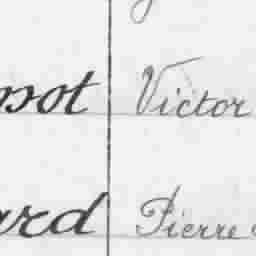 not Victor
ard Pierre